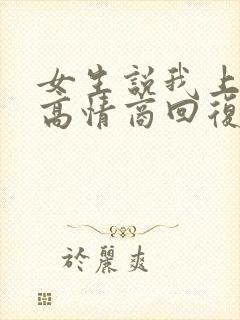 女生説我上
高情商回復
於麗爽